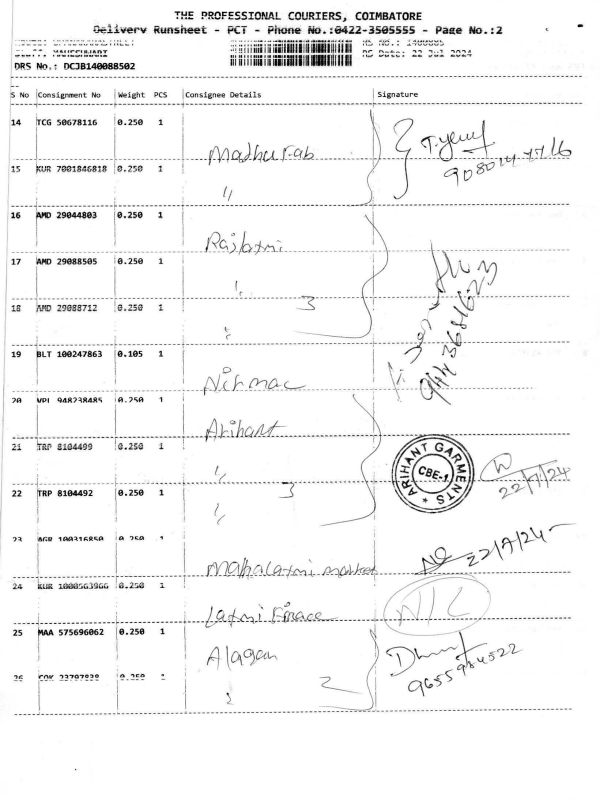 THE PROFESSIONAL COURIERS, COIMBATORE
Delivery Runsheet - PCT - Phone No.:0422-3505555 - Page No.:2
RS Date: 22 Jul 2024
DRS No.: DCJB140088502
S No Consignment No Weight PCS Consignee Details Signature
14 TCG 50678116 0.250 1
Madhurab
15 KUR 7001846818 0.250 1
〃
16 AMD 29044803 0.250 1
Rajlaxmi
17 AMD 29088505 0.250 1
3
18 AMD 29088712 0.250 1
19 BLT 100247863 0.105 1
Nirmac
20 VPL 948238485 0.250 1
Arihant
21 TRP 8104499 0.250 1
ARIHANT GARMENTS
CBE-1
22/7/24
3
22 TRP 8104492 0.250 1
23 AGR 100316850 0.250 1
Mahalaxmi market 22/7/24
24 KUR 1000563966 0.250 1
Laxmi Finace N/L
25 MAA 575696062 0.250 1
Alagan
9655984522
26 COK 23797838 0.250
2